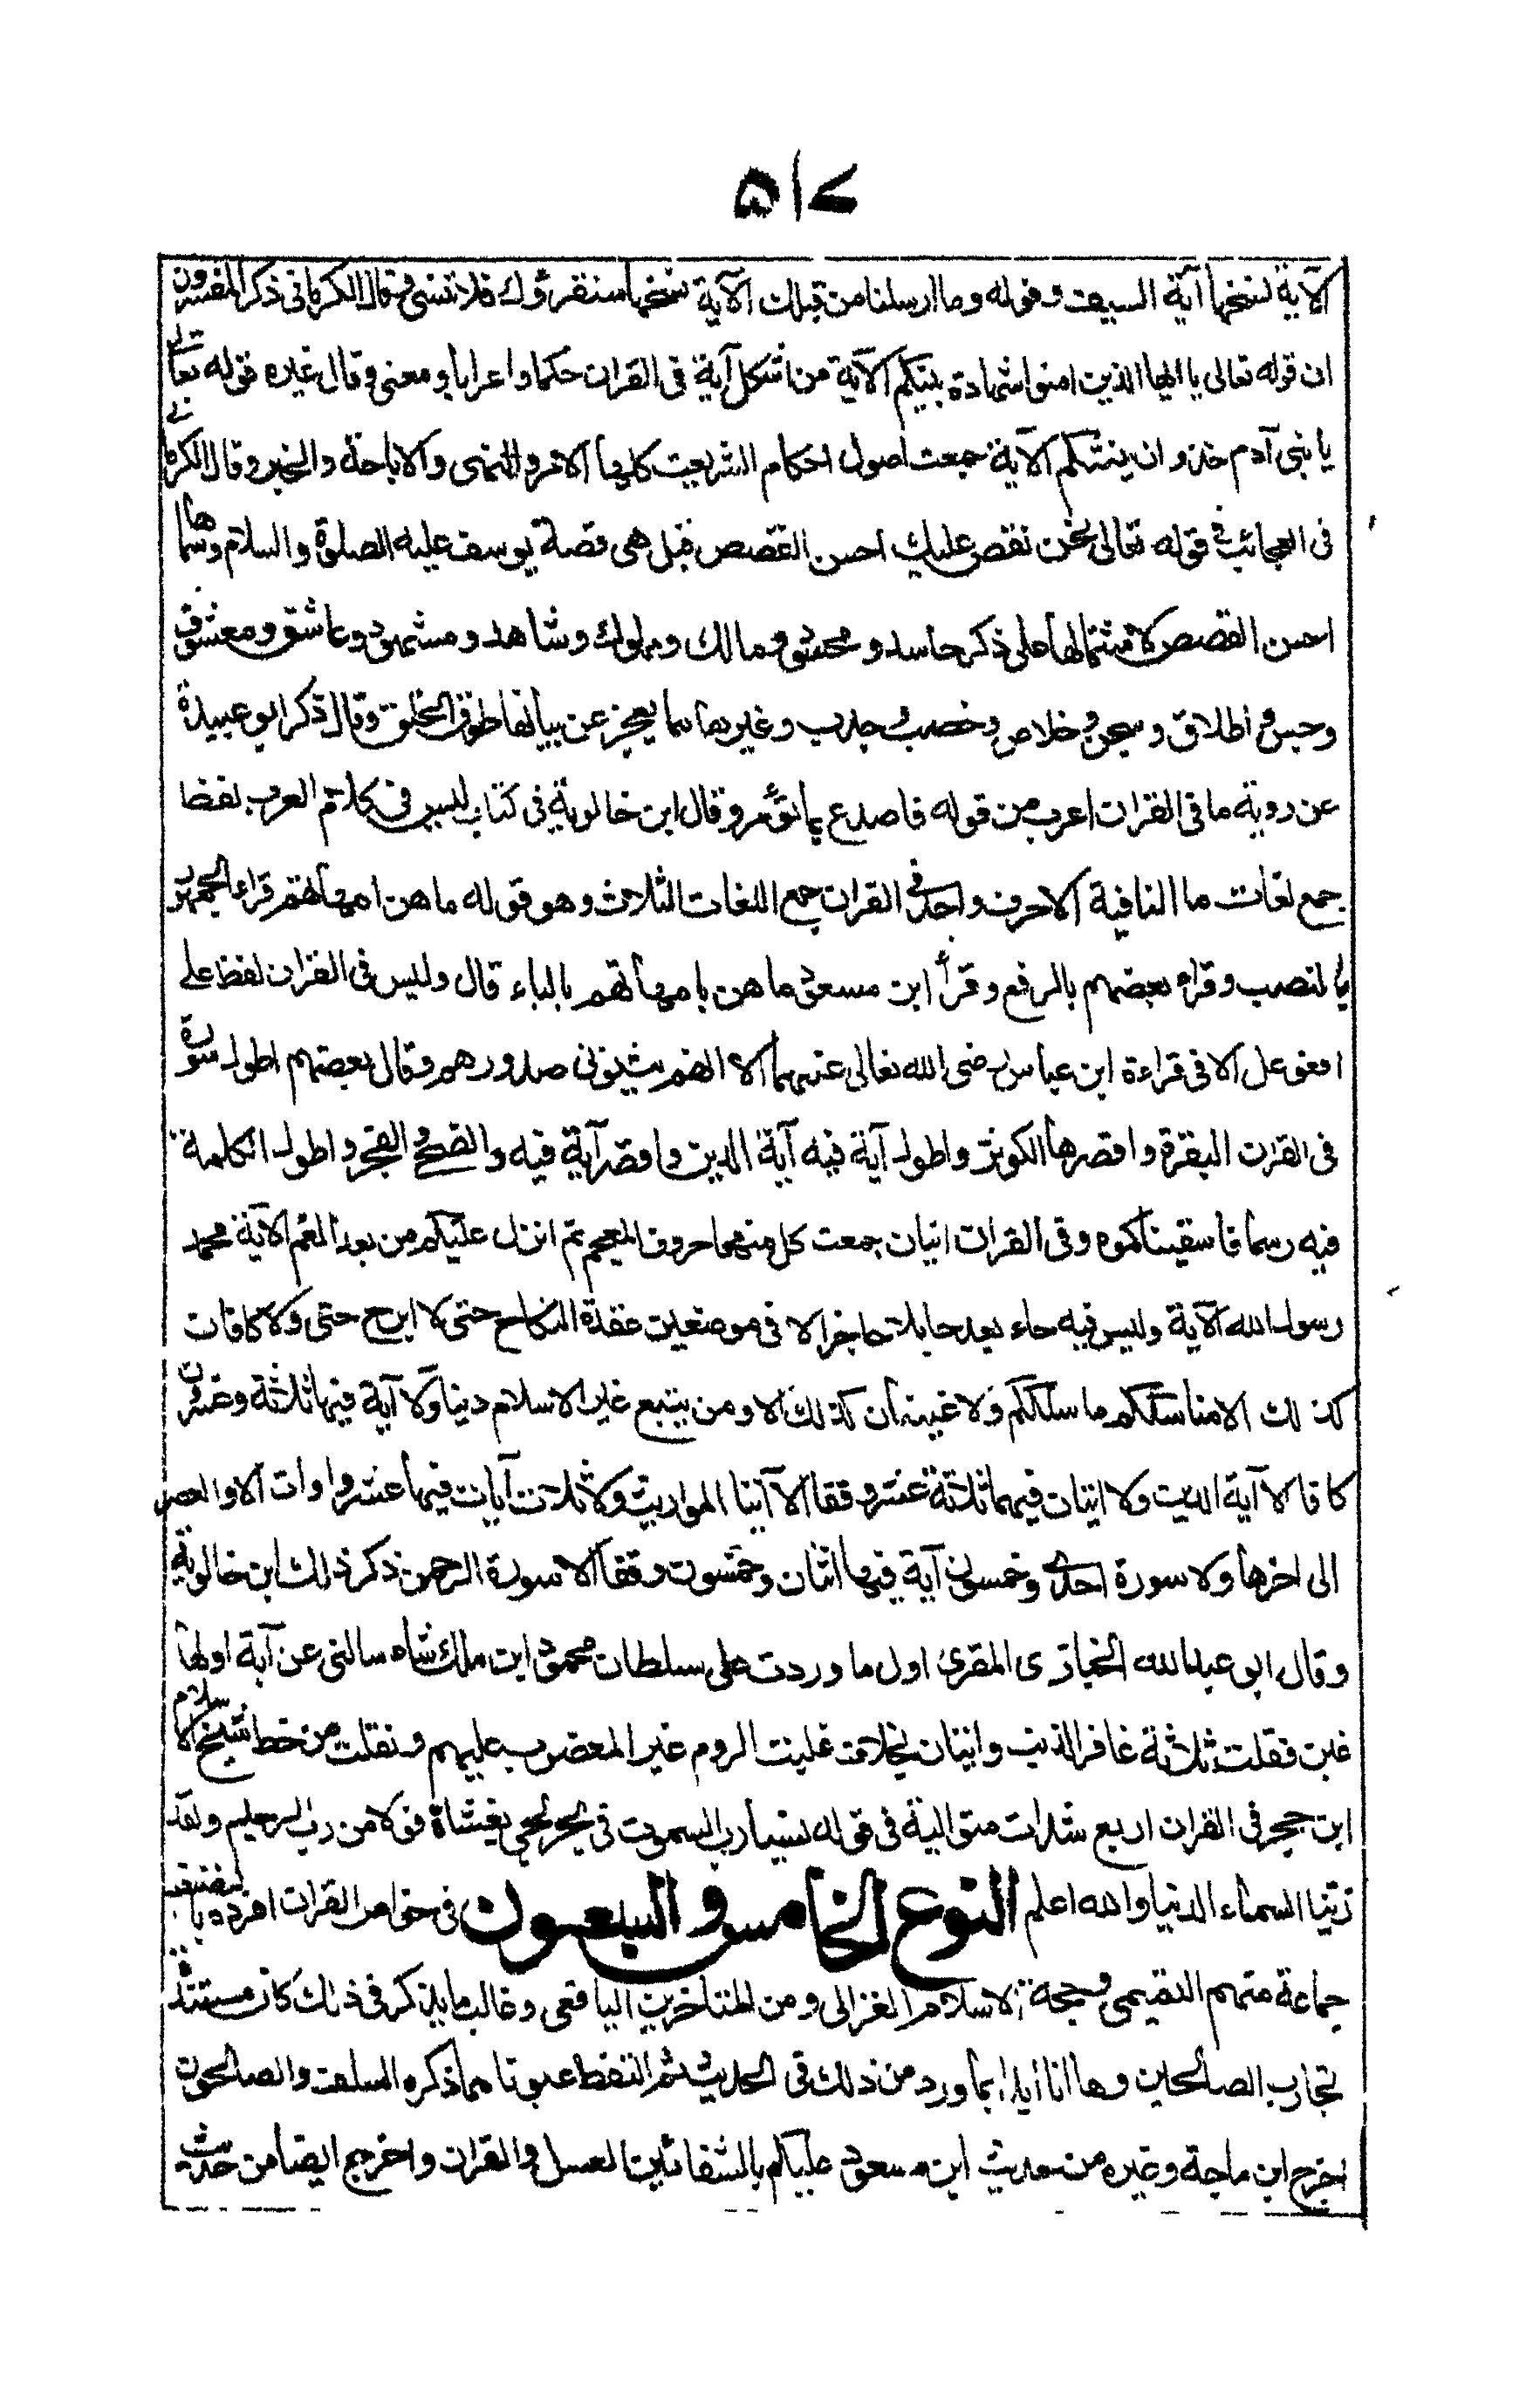 ۵۱۷
الآية نسخها آية السيف وقوله وما ارسلنا من قبلك الآية نسخها سنقرؤك فلا تنسى وقال الكرمانى ذكر المفسرون
ان قوله تعالى يا ايها الذين امنوا شهادة بينكم الآية من اشكل آية فى القران حكما واعرابا ومعنى وقال غيره قوله تعالى
يا بنى آدم خذوا زينتكم الآية جمعت اصول احكام الشريعت كلها الامر والنهى والاباحة والخبر وقال الكرمانى
فى العجائب فى قوله تعالى نحن نقص عليك احسن القصص قيل هى قصة يوسف عليه الصلوة والسلام وسماها
احسن القصص لاشتمالها على ذكر حاسد ومحسود ومالك ومملوك وشاهد ومشهود وعاشق ومعشوق
وحبس واطلاق وسجن وخلاص وخصب وجدب وغيرها مما يعجز عن بيانها طوق الخلق وقال ذكر ابو عبيدة
عن روبة ما فى القران اعرب من قوله فاصدع بما تؤمر وقال ابن خالوية فى كتاب ليس فى كلام العرب لفظا
جمع لغات ما النافية الا حرف واحد فى القران جمع اللغات الثلاث وهو قوله ما هن امهاتهم قراءالجمهور
بالنصب وقراء بعضهم بالرفع وقرأ ابن مسعود ما هن بامهاتهم بالباء قال وليس فى القران لفظ على
افعوعل الا فى قراءة ابن عباس رضى الله تعالى عنهما الا انهم يثنونى صدورهم وقال بعضهم اطول سورة
فى القران البقرة واقصرها الكوثر واطول آية فيه آية الدين واقصر آية فيه والضحى والفجر واطول الكلمة
فيه رسما فاسقيناكموه وفى القران اثيان جمعت كل منهما حروف المعجم ثم انزل عليكم من بعد الغم الآية محمد
رسول الله الآية وليس فيه حاء بعد حا بلا حاجز الا فى موضعين عقدة النكاح حتى لا ابرح حتى ولا كافان
كذلك الا مناسككم ما سلككم ولا غينان كذلك الا ومن يبتغ غير الاسلام دينا ولا آية فيها ثلاثة وعشرون
كافا الا آية الدين ولا ايتان فيهما ثلاثة عشر وقفا الا آيتا المواريث ولا ثلاث آيات فيها عشر واوات الا والعصر
الى اخرها ولا سورة احدى وخمسون آية فيها اثنان وخمسون وقفا الا سورة الرحمن ذكر ذلك ابن خالوية
وقال ابو عبد الله الخبازى المقرى اول ما وردت على سلطان محمود ابن ملك شاه سالنى عن آية اولها
غين فقلت ثلاثة غافر الذنب وايتان بخلاف غلبت الروم غير المغضوب عليهم ونقلت من خط شيخ الاسلام
ابن حجر فى القران اربع شدات متوالية فى قوله نسيا رب السموت فى بحر لجى يغشاه قولا من رب الرحيم ولقد
زينا السماء الدنيا والله اعلم النوع الخامس والسبعون فى خواص القران افرده بالتصنيف
جماعة منهم التميمى وحجة الاسلام الغزالى ومن المتاخرين اليافعى وغالب ما يذكر فى ذلك كان مستنده
تجارب الصالحين وها انا ابدا بما ورد من ذلك فى الحديث ثم التقط عيونا مما ذكره السلف والصالحون
اخرج ابن ماجة وغيره من حديث ابن مسعود عليكم بالشفائين العسل والقران واخرج ايضا من حديث